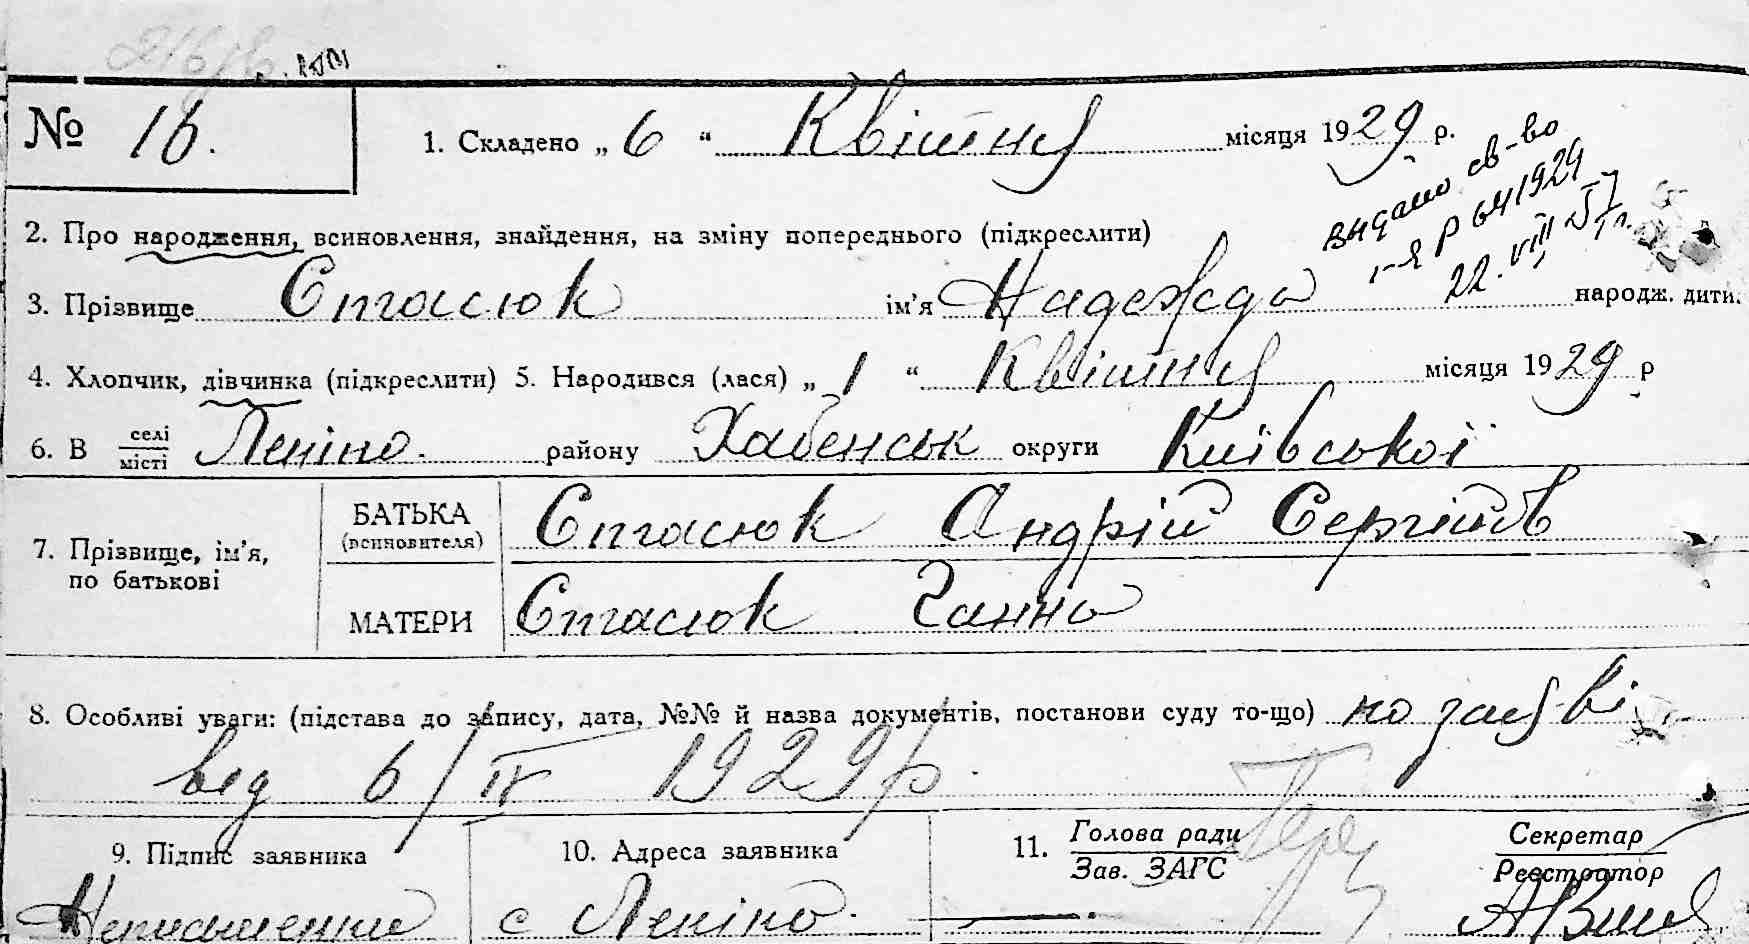 № 16.
1. Складено „ 6 “ Квітня місяця 1929 р.
видано св-во
І-Я Р 641929
22. VIII 57 р.
2. Про народження, всиновлення, знайдення, на зміну попереднього (підкреслити)
3. Прізвище Стасюк ім’я Надежда народж. дити.
4. Хлопчик, дівчинка (підкреслити) 5. Народився (лася) „ 1 “ Квітня місяця 1929 р
6. В селі місті Леніно. району Хабенськ округи Київської
7. Прізвище, ім’я, по батькові
БАТЬКА (всиновителя) Стасюк Андрій Сергійов
МАТЕРИ Стасюк Ганна
8. Особливі уваги: (підстава до запису, дата, №№ й назва документів, постанови суду то-що) по заяві
від 6/IV 1929 р.
9. Підпис заявника 10. Адреса заявника 11. Голова ради Зав. ЗАГС Секретар Реєстратор
Неписьменний с Леніно.